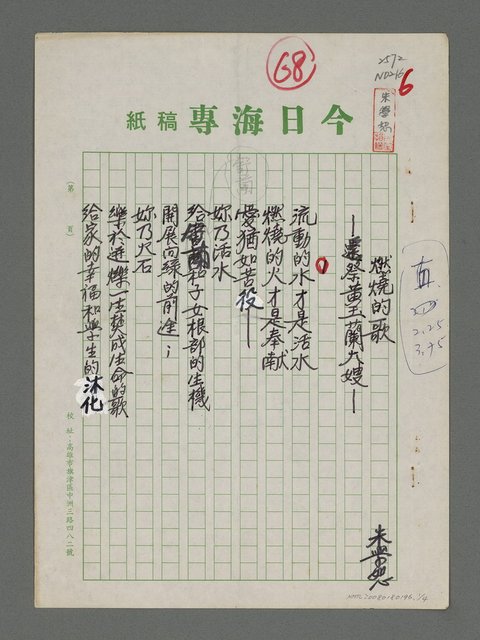 68
2572
N0216
6
朱學恕
今日海專 稿紙
(第 頁)
燃燒的歌
—遙祭黃玉蘭大嫂—
朱學恕
流動的水才是活水
燃燒的火才是奉献
愛猶如苦役—
妳乃活水
和子女根部的生機
開展向綠的前途；
妳乃火石
樂於迸爍一生焚成生命的歌
給家的幸福和學生的沐化
2.25
3.15
校址：高雄市旗津區中洲三路四八二號
NMTL20080180196 1/4